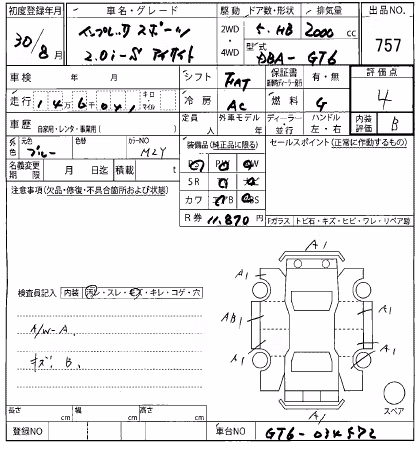 初度登録年月 車名・グレード 駆動 ドア数・形状 排気量 出品NO.
30/8月 インプレッサ スポーツ 2WD 5.HB 2000cc 757
2.0i-S アイサイト 4WD 型式 DBA-GT6
車検 年 月 シフト FAT 保証書 有・無 評価点
走行 146,041 キロ マイル 冷房 AC 燃料 G 4
車歴 自家用・レンタ・事業用( ) 定員 人 外車モデル 年 ディーラー・並行 ハンドル 左・右 内装評価 B
外色 元色 ブルー 色替 カラーNO M2Y 装備品(純正品に限る) セールスポイント(正常に作動するもの)
名義変更期限 月 日迄 積載 t SR
注意事項(欠品・修復・不具合箇所および状態) カワ
R券 11,870円 Fガラス トビ石・キズ・ヒビ・ワレ・リペア跡
A1
A1 A1
検査員記入 内装 汚レ・スレ・キズ・キレ・コゲ・穴
AB1 A1
A/W-A.
A1 A1
キズ、B.
スペア
A1
長さ cm 幅 cm 高さ cm
登録NO 車台NO GT6-034572